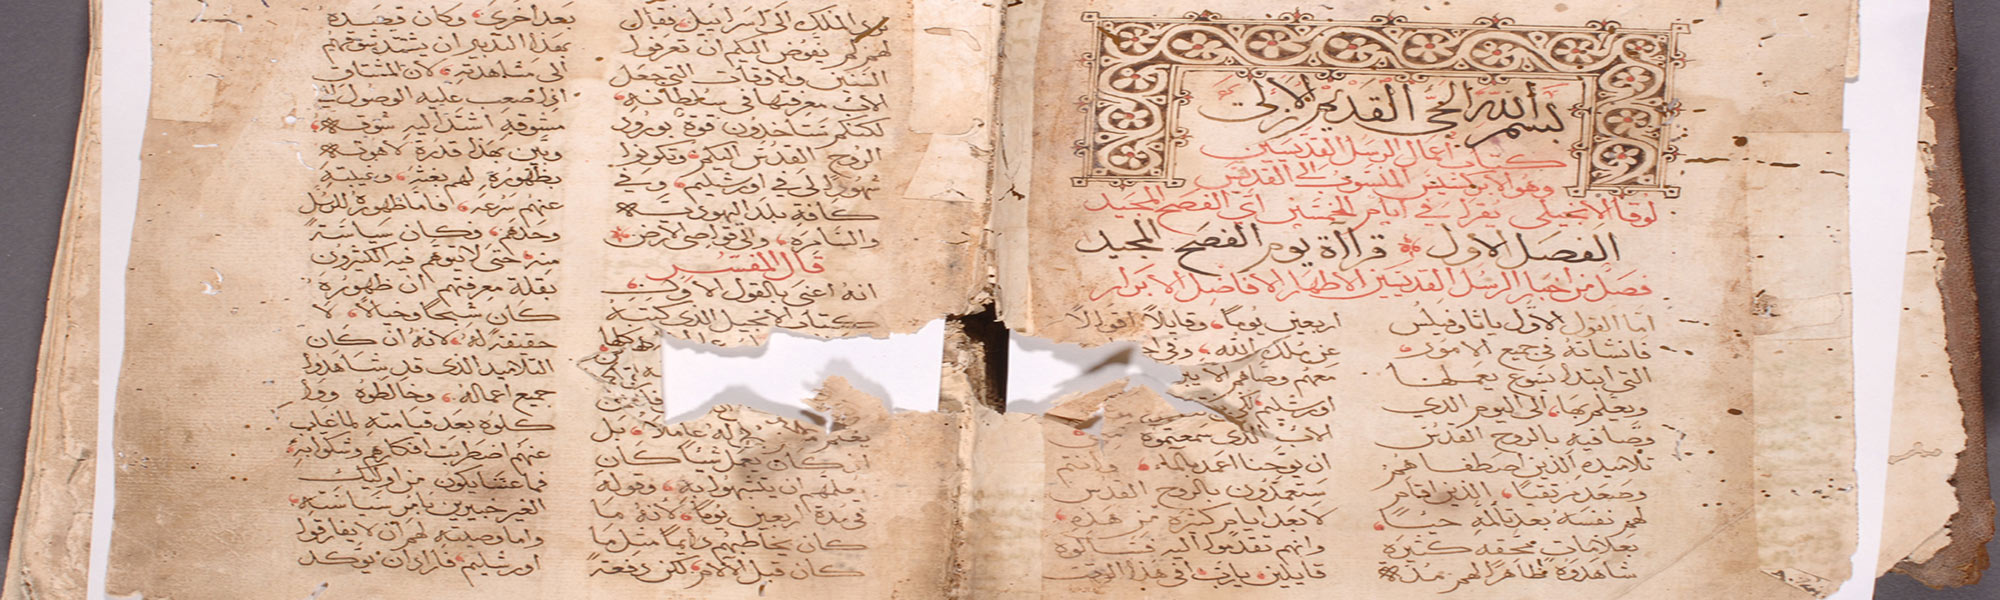 بسم الله الحي القديم الازلي
كتاب اعمال الرسل القديسين
وهو الابركسيس المنسوب الى القديس
لوقا الانجيلي يقرا في ايام الخمسين اي الفصح المجيد
الفصل الاول قراآة يوم الفصح المجيد
فصل من اخبار الرسل القديسين الاطهار الافاضل الابرار
اما القول الاول ياثاوفيلس
فانشاته في جميع الامور
التي ابتدا يسوع يعملها
ويعلم بها، الى اليوم الذي
وصا فيه بالروح القدس
تلاميذه الذين اصطفاهم
وصعد مرتقيًا، الذين اقام
لهم نفسه بعد تالمه حيًا
بعلامات محققه كثيرة
شاهدوه ظاهرًا لهم مدة
اربعين يومًا، وقايلًا اقوالًا
عن ملك الله،
معهم وصاهم الا
اورشليم
الاب الذي سمعتموه
ان يوحنا اعمد بالما، وانتم
ستعمدون بالروح القدس
لا بعد ايام كثيرة من هذه
وانهم تقدموا اليه فسالوه
قايلين يارب افي هذا الوقت
الملك الى اسراييل، فقال
لهم لم يفوض اليكم ان تعرفوا
السنين والاوقات التي جعل
الاب معرفتها في سلطانه
لكنكم ستاخذون قوة بورود
الروح القدس اليكم، وتكونوا
شهودًا لي في اورشليم، وفي
كافة بلد اليهودية
والسامرة، والى اقصى الارض
قال المفسر
انه اعنى بالقول الاول
كتاب الانجيل الذي كتبه
بل
ان كان يعمل شيًا كان
يعلمهم ان يتشبهوا به، وقوله
في مدة اربعين يومًا، لانه ما
كان يخاطبهم دايمًا مثل ما
كان قبل الالام، لكن دفعة
بعد اخرى، وكان قصده
بهذا التدبير ان يشتد شوقهم
الى مشاهدته، لان المشتاق
اذا صعب عليه الوصول الى
مشوقه اشتد اليه شوقه
وبين بهذا قدرة لاهوته
بظهوره لهم بغتة، وغيبته
عنهم بسرعه، فاما ظهوره للرسل
وحدهم، وكان سياسةً
منه، حتى لا يتوهم فيه الكثيرون
بقلة معرفتهم ان ظهوره
كان شبحًا وخيالًا، لا
حقيقة له، لانه ان كان
التلاميذ الذي قد شاهدوا
جميع اعماله، وخالطوه
كلوه بعد قيامته لما غاب
عنهم اضطربت افكارهم وشكوا به
فما عسا يكون من اوليك
الغير خبيرين بامر سياسته
واما وصيته لهم ان لا يفارقوا
اورشليم، فاراد ان يوكد